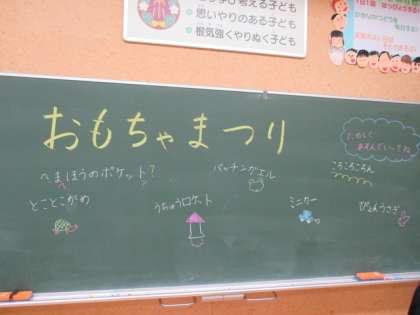 考える子ども
思いやりのある子ども
根気強くやりぬく子ども
おもちゃまつり
たのしく
あそんでいってね
へまほうのポケット?
パッチンガエル
ころころころりん
とことこがめ
うちゅうロケット
ミニカー
ぴょんうさぎ